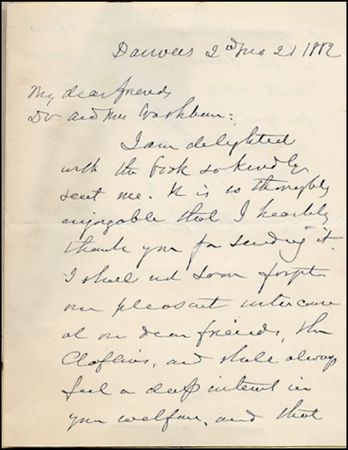 Danvers 2nd Mo 21 1882
My dear friends
Dr and Mrs Washburn:
I am delighted
with the book so kindly
sent me. It is so thoroughly
enjoyable that I heartily
thank you for sending it.
I shall not soon forget
our pleasant intercourse
at our dear friends, the
Claflins, and shall always
feel a deep interest in
your welfare, and that